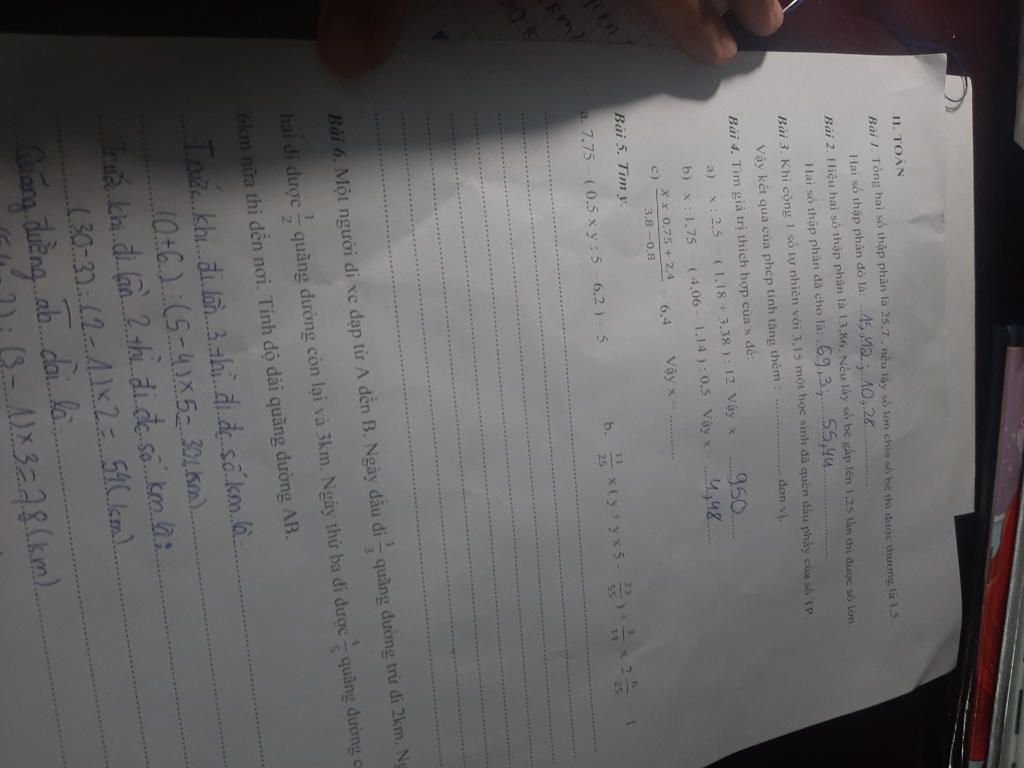 II. TOÁN
Bài 1. Tổng hai số thập phân là 25,7, nếu lấy số lớn chia số bé thì được thương là 1,5.
Hai số thập phân đó là: 15,42; 10,28
Bài 2. Hiệu hai số thập phân là 13,86. Nếu lấy số bé gấp lên 1,25 lần thì được số lớn.
Hai số thập phân đã cho là: 69,3; 55,44
Bài 3. Khi cộng 1 số tự nhiên với 3,15 một học sinh đã quên dấu phảy của số TP.
Vậy kết quả của phép tính tăng thêm : .......... đơn vị.
Bài 4. Tìm giá trị thích hợp của x để:
a) x : 2,5 = ( 1,18 + 3,38 ) : 12 Vậy x = 950
b) x - 1,75 = ( 4,06 – 1,14 ) : 0,5 Vậy x = 4,48
c) x x 0,75 + 2,4 / 3,8 – 0,8 = 6,4 Vậy x = ..........
Bài 5. Tìm y.
a. 7,75 – ( 0,5 x y : 5 – 6,2 ) = 5 b. 11/25 x ( y + y x 5 - 23/55 ) + 3/14 x 2 6/25 = 1
Bài 6. Một người đi xe đạp từ A đến B. Ngày đầu đi 1/3 quãng đường trừ đi 2km. Ng
hai đi được 1/2 quãng đường còn lại và 3km. Ngày thứ ba đi được 4/5 quãng đường c
6km nữa thì đến nơi. Tính độ dài quãng đường AB.
Trước khi đi lần 3 thì đi đc số km là
(0+6) : (5-4) x 5 = 30 (km)
Trước khi đi lần 2 thì đi đc số km là:
(30-3) (2-1) x 2 = 54 (km)
Quãng đường ab dài là
: (3-1) x 3 = 78 (km)